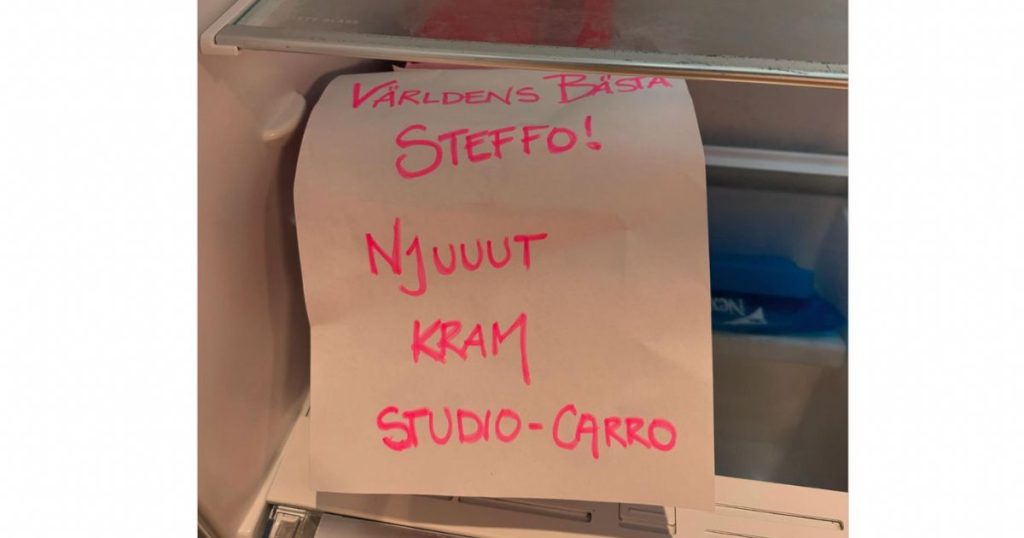 VÄRLDENS BÄSTA
STEFFO!
NJUUUT
KRAM
STUDIO-CARRO